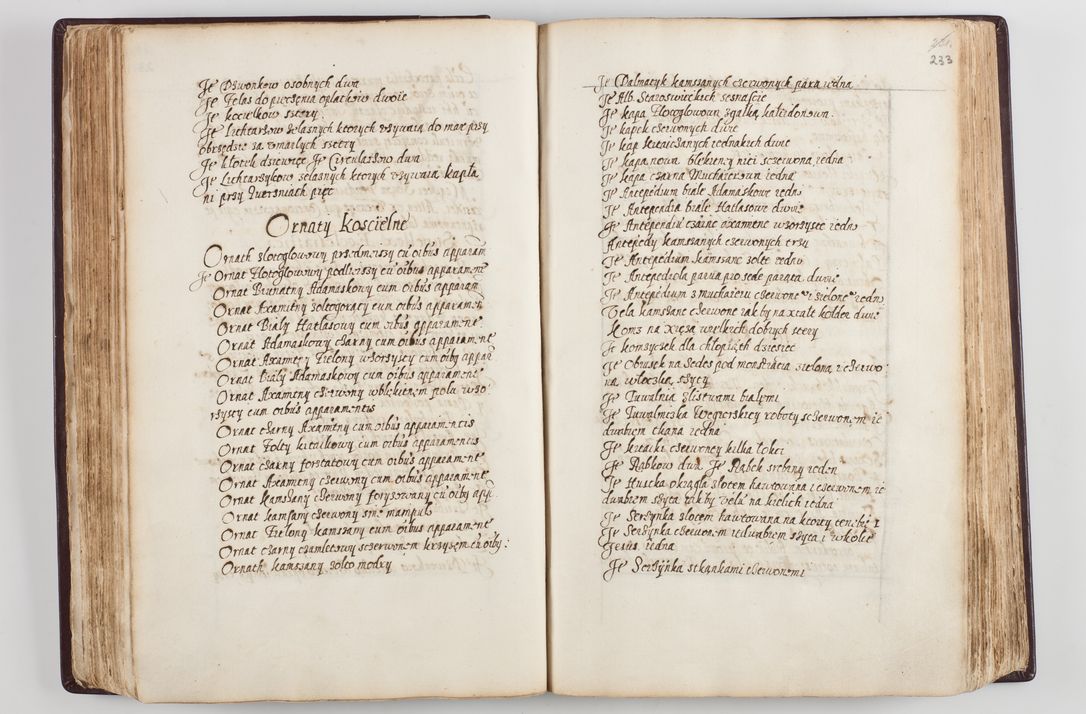 Je Dzwonkow osobnych dwa
Je Zelas do pieczenia oplatkow dwoie
Je kocielkow sztery
Je Lichtarzow zelasnych ktorych vzywaia do mar przy
obrzędzie za vmarłych sztery
Je kłotek dziewięc Je Circularzow dwa
Je Lichtarzykow zelasnych ktorych vzywaia kapła
ni przy pięc
Ornaty Koscielne
Ornath zlotoglowowy przednieiszy cū oībus apparam
Je Ornat Zlotoglowowy podleiszy cū oibus apparament
Ornat Adamaskowy cum oibus apparam
Ornat Axamitny zoltogoracy cum oibus apparament
Ornat Biały Hatlasowy cum oibus apparament
Ornat Adamaskowy czarny cum oibus apparament
Ornat Axametny Zielony wzorzysty cum oiby appar
Ornat biały Adamaskowy cum oibus apparament
Ornat Axamitny czerwony w błękitnem polu wzo
rzysty cum oibus apparamentis
Ornat czarny Axamitny cum oibus apparamentis
Ornat Zolty kitaikowy cum oibus apparamentis
Ornat czarny forstatowy cum oibus apparament
Ornat Axamitny czerwony cum oibus apparament
Ornat kamszany czerwony foryzowany cū oiby app
Ornat kamszany czerwony sine manipul
Ornat Zielony kamszany cum oibus apparament
Ornat czarny czamletowy sczerwonem krzyzem cū oiby:
Ornath kamszany zolto modry
233
Je Dalmatyk kamszanych czerwonych para iedna
Je Alb Staroswieckich sesnascie
Je kapa Zlotoglowowa zgałką kalcidonowa
Je kapek czerwonych dwie
Je kap kitaiczanych iednakich dwie
Je kapa nowa błękitney nici sczerwoną iedna
Je kapa czarna Muchaierowa iedna
Je Antepedium białe Adamaskowe iedno
Je Antependia białe Hatlasowe dwoie
Je Antependiū czarne axamitne wzorzyste iedno
Antepedy kamszanych czerwonych trzy
Je Antepedium kamszane zolte iedno
Je Antepediola parua pro sede parata dwie
Je Antepedium z muchaieru czerwone i zielone iedno
Vela kamszane czerwone iakby na xtalt kolder dwie
komz na xięza wielkich dobrych sztery
Je komzyczek dla chłopiąth dziesiec
Je Obrusek na Sedes pod monstrācia zielona zczerwo
na włoczką szyty
Je Tuwalnia z listwami białęmi
Je Tuwalniczka Węgierskiey roboty sczerwonem ie
dwabiem tkana iedna
Je kitaiki czerwoney kilka łokci
Je Rąbkow dwa Je Rąbek srebrny ieden
Je Hustka okrągła złotem hawtowana i czerwonem ie
dwabiem szyta iakby velū na kielich iedna
Je Serzynka złotem hawtowana na ktorey
Je Serzynka czerwonem iedwabiem szyta i wkole
Jesus iedna
Je Serzynka stkankami czerwonemi